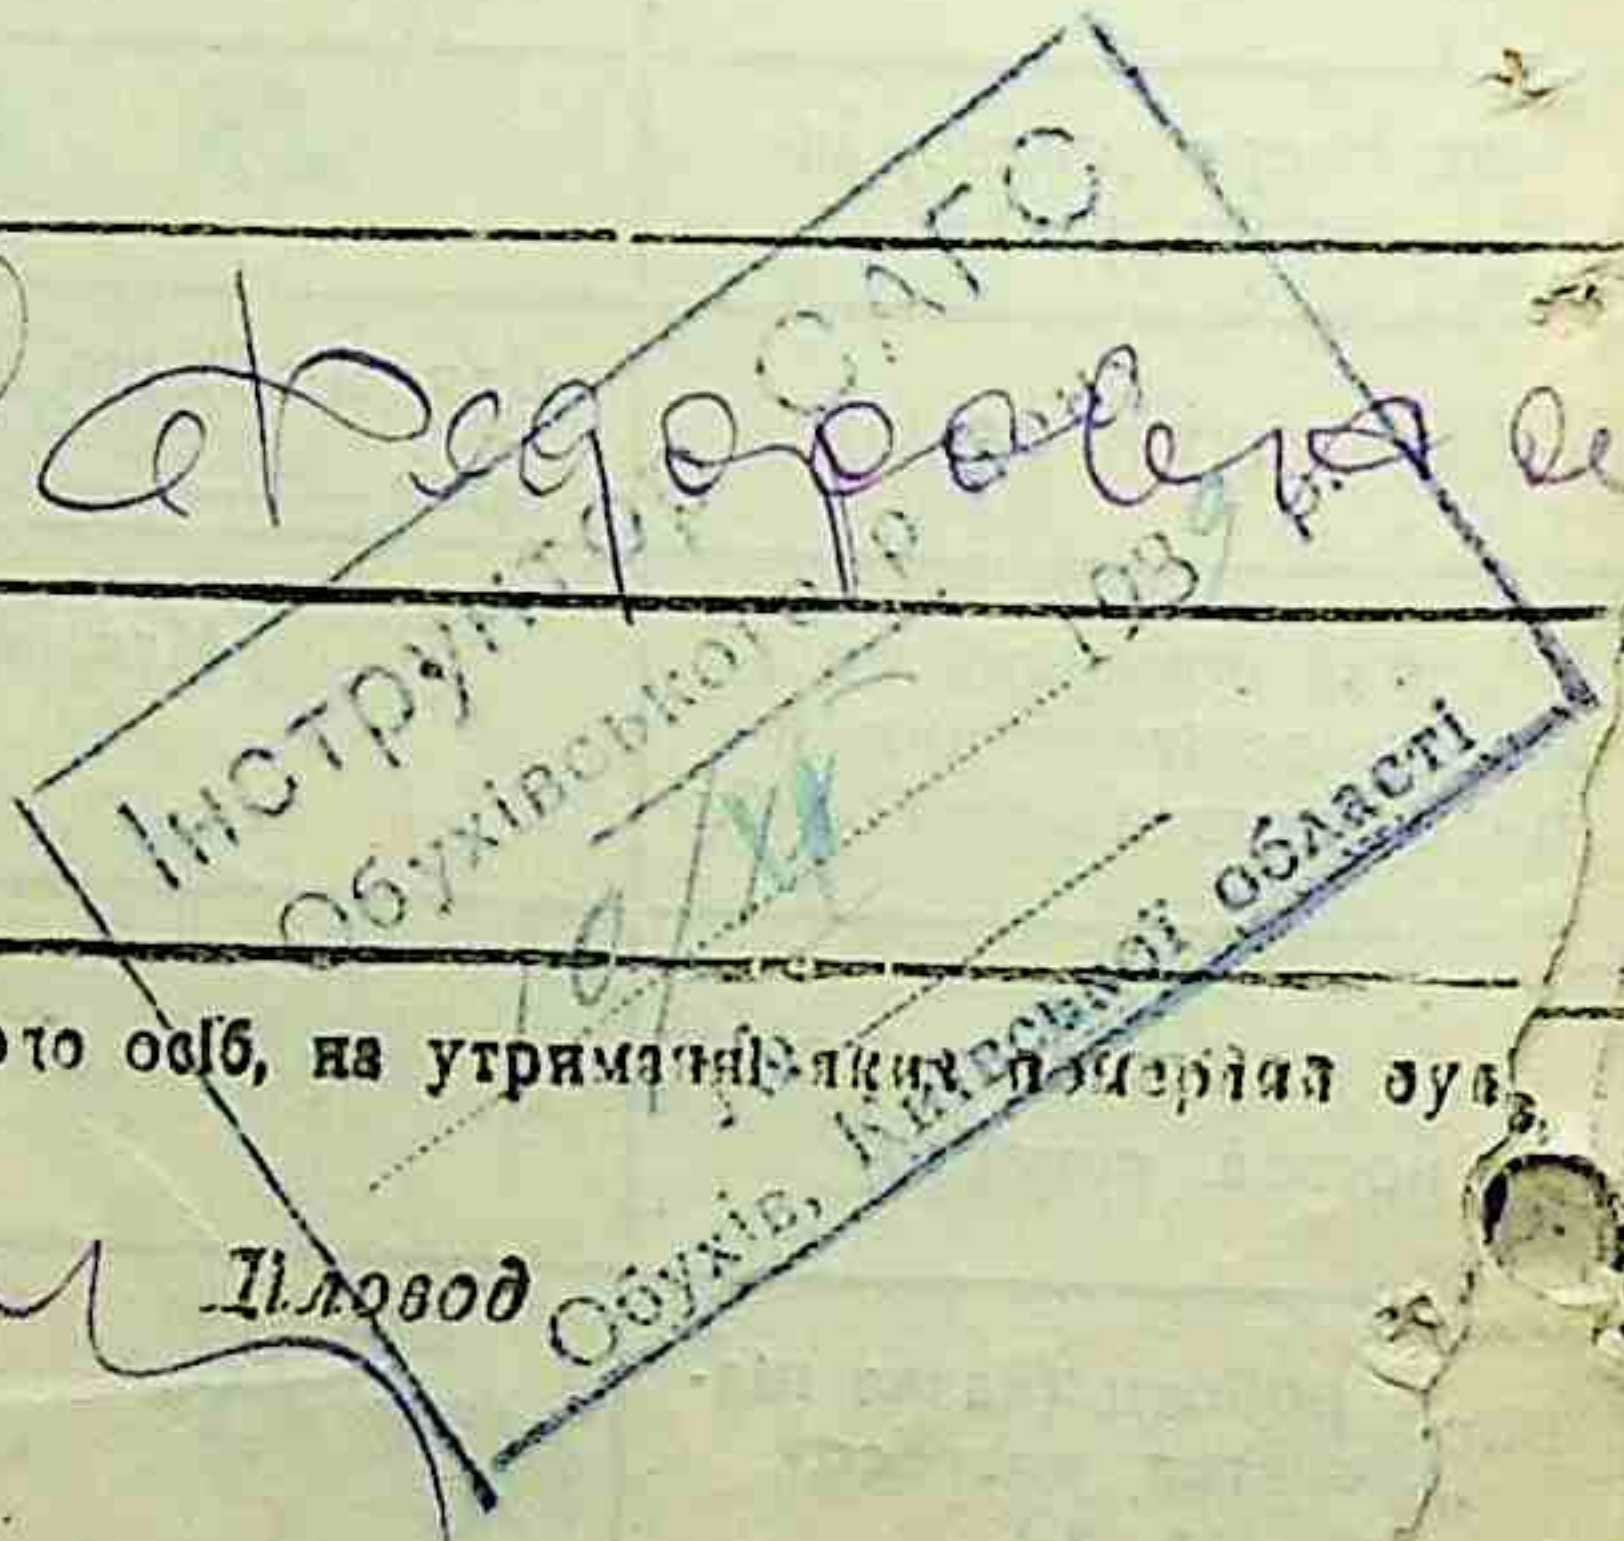 Федоровна
Інструктор ОАГС
Обухівського р.
10/XI 1939 р.
Обухів, Київської області
осіб, на утриманні яких померлий був.
Діловод